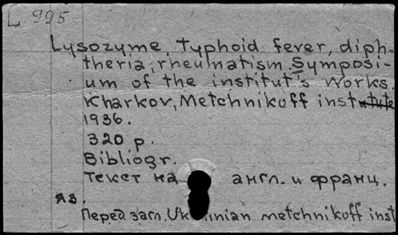 L 995
Lysozyme, typhoid fever, diph-
theria, rheumatism. Symposi-
um of the institut's works.
Kharkov, Metchnikoff institute
1936.
320 p.
Bibliogr.
Текст на англ. и франц.
яз.
Перед загл. Uk inian metchnikoff inst